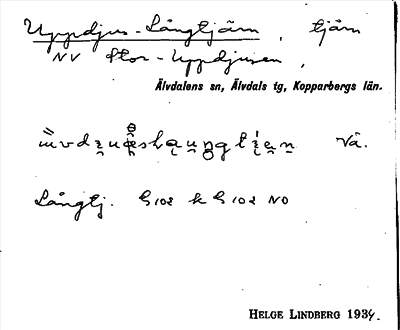 Uppdjus-Långtjärn, tjärn
NV Stor-Uppdjusen,
Älvdalens sn, Älvdals tg, Kopparbergs län.
Vä.
Långtj. G 102 k G 102 NO
HELGE LINDBERG 1934.